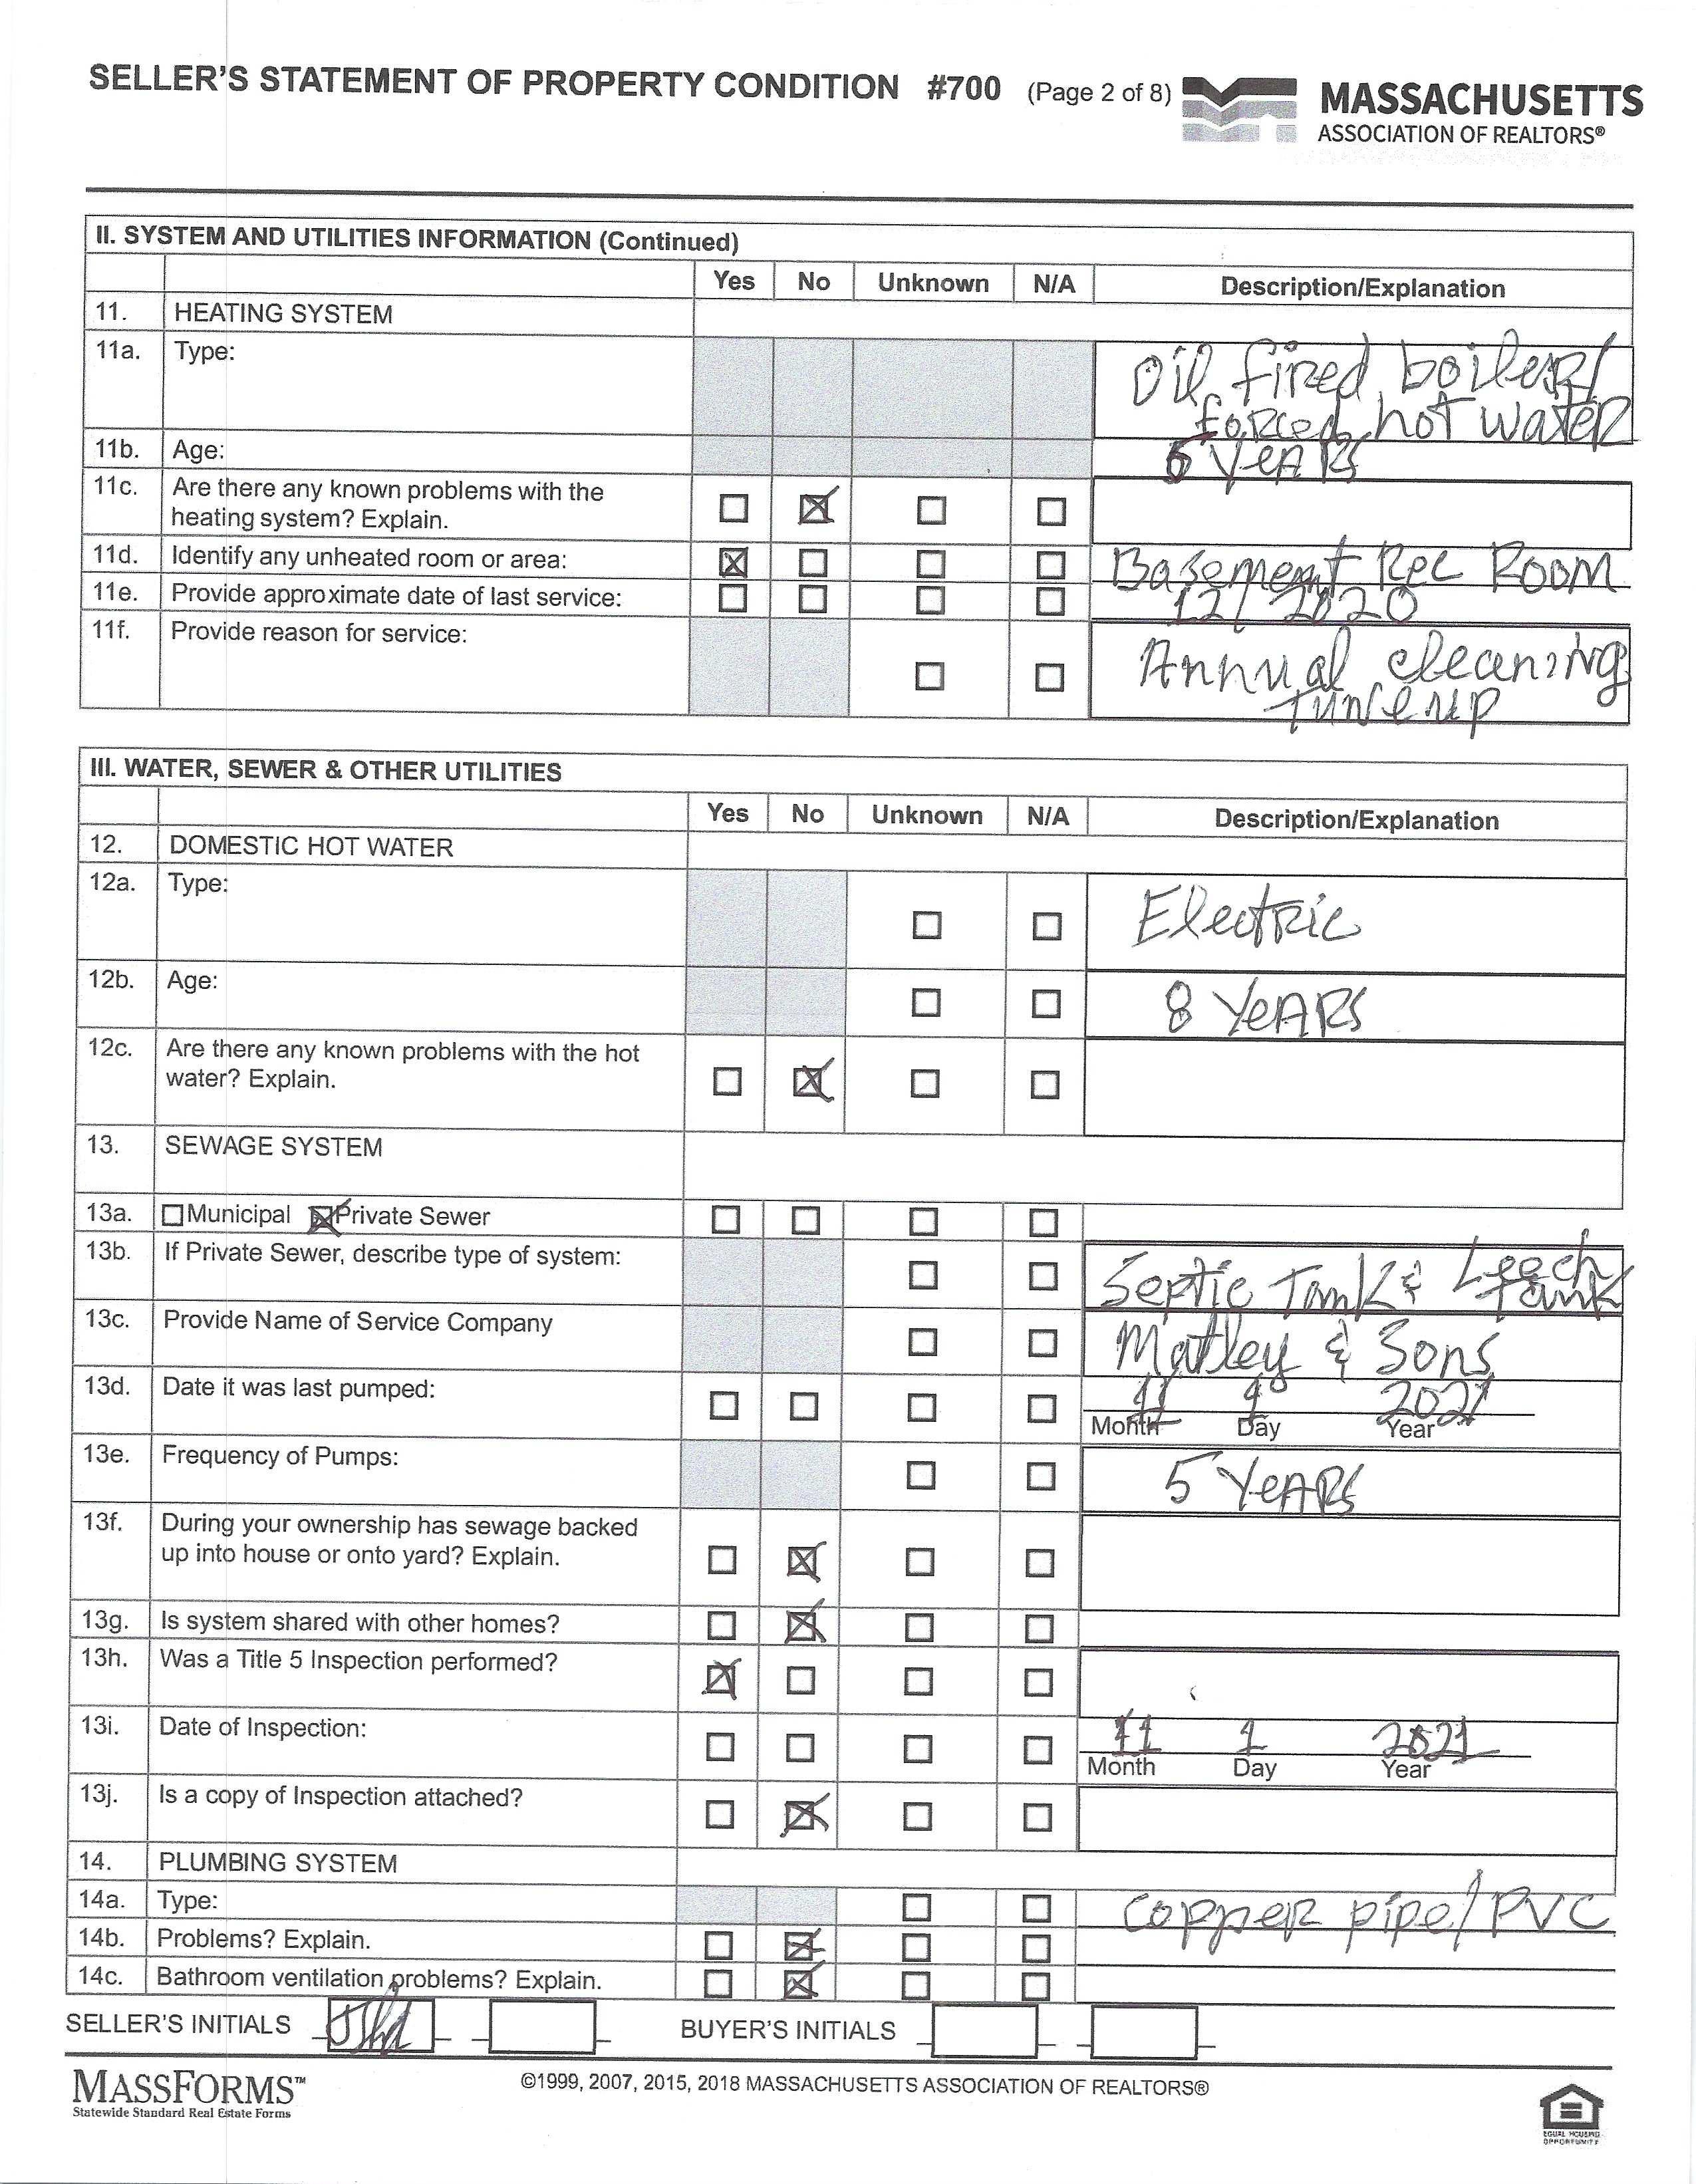 SELLER'S STATEMENT OF PROPERTY CONDITION #700 (Page 2 of 8)
MASSACHUSETTS
ASSOCIATION OF REALTORS®
II. SYSTEM AND UTILITIES INFORMATION (Continued)
Yes No Unknown N/A Description/Explanation
11. HEATING SYSTEM
11a. Type: Oil fired boiler/
forced hot water
11b. Age: 6 years
11c. Are there any known problems with the
heating system? Explain.
11d. Identify any unheated room or area: Basement Rec Room
11e. Provide approximate date of last service: 12/2020
11f. Provide reason for service: Annual cleaning
tuneup
III. WATER, SEWER & OTHER UTILITIES
Yes No Unknown N/A Description/Explanation
12. DOMESTIC HOT WATER
12a. Type: Electric
12b. Age: 8 YeARS
12c. Are there any known problems with the hot
water? Explain.
13. SEWAGE SYSTEM
13a. Municipal Private Sewer
13b. If Private Sewer, describe type of system: Septic Tank & Leech
tank
13c. Provide Name of Service Company Matley & Sons
13d. Date it was last pumped: 11 2021
Month Day Year
13e. Frequency of Pumps: 5 YeARS
13f. During your ownership has sewage backed
up into house or onto yard? Explain.
13g. Is system shared with other homes?
13h. Was a Title 5 Inspection performed?
13i. Date of Inspection: 11 1 2021
Month Day Year
13j. Is a copy of Inspection attached?
14. PLUMBING SYSTEM
14a. Type: copper pipe/PVC
14b. Problems? Explain.
14c. Bathroom ventilation problems? Explain.
SELLER'S INITIALS BUYER'S INITIALS
MASSFORMS™
Statewide Standard Real Estate Forms
©1999, 2007, 2015, 2018 MASSACHUSETTS ASSOCIATION OF REALTORS®
EQUAL HOUSING
OPPORTUNITY